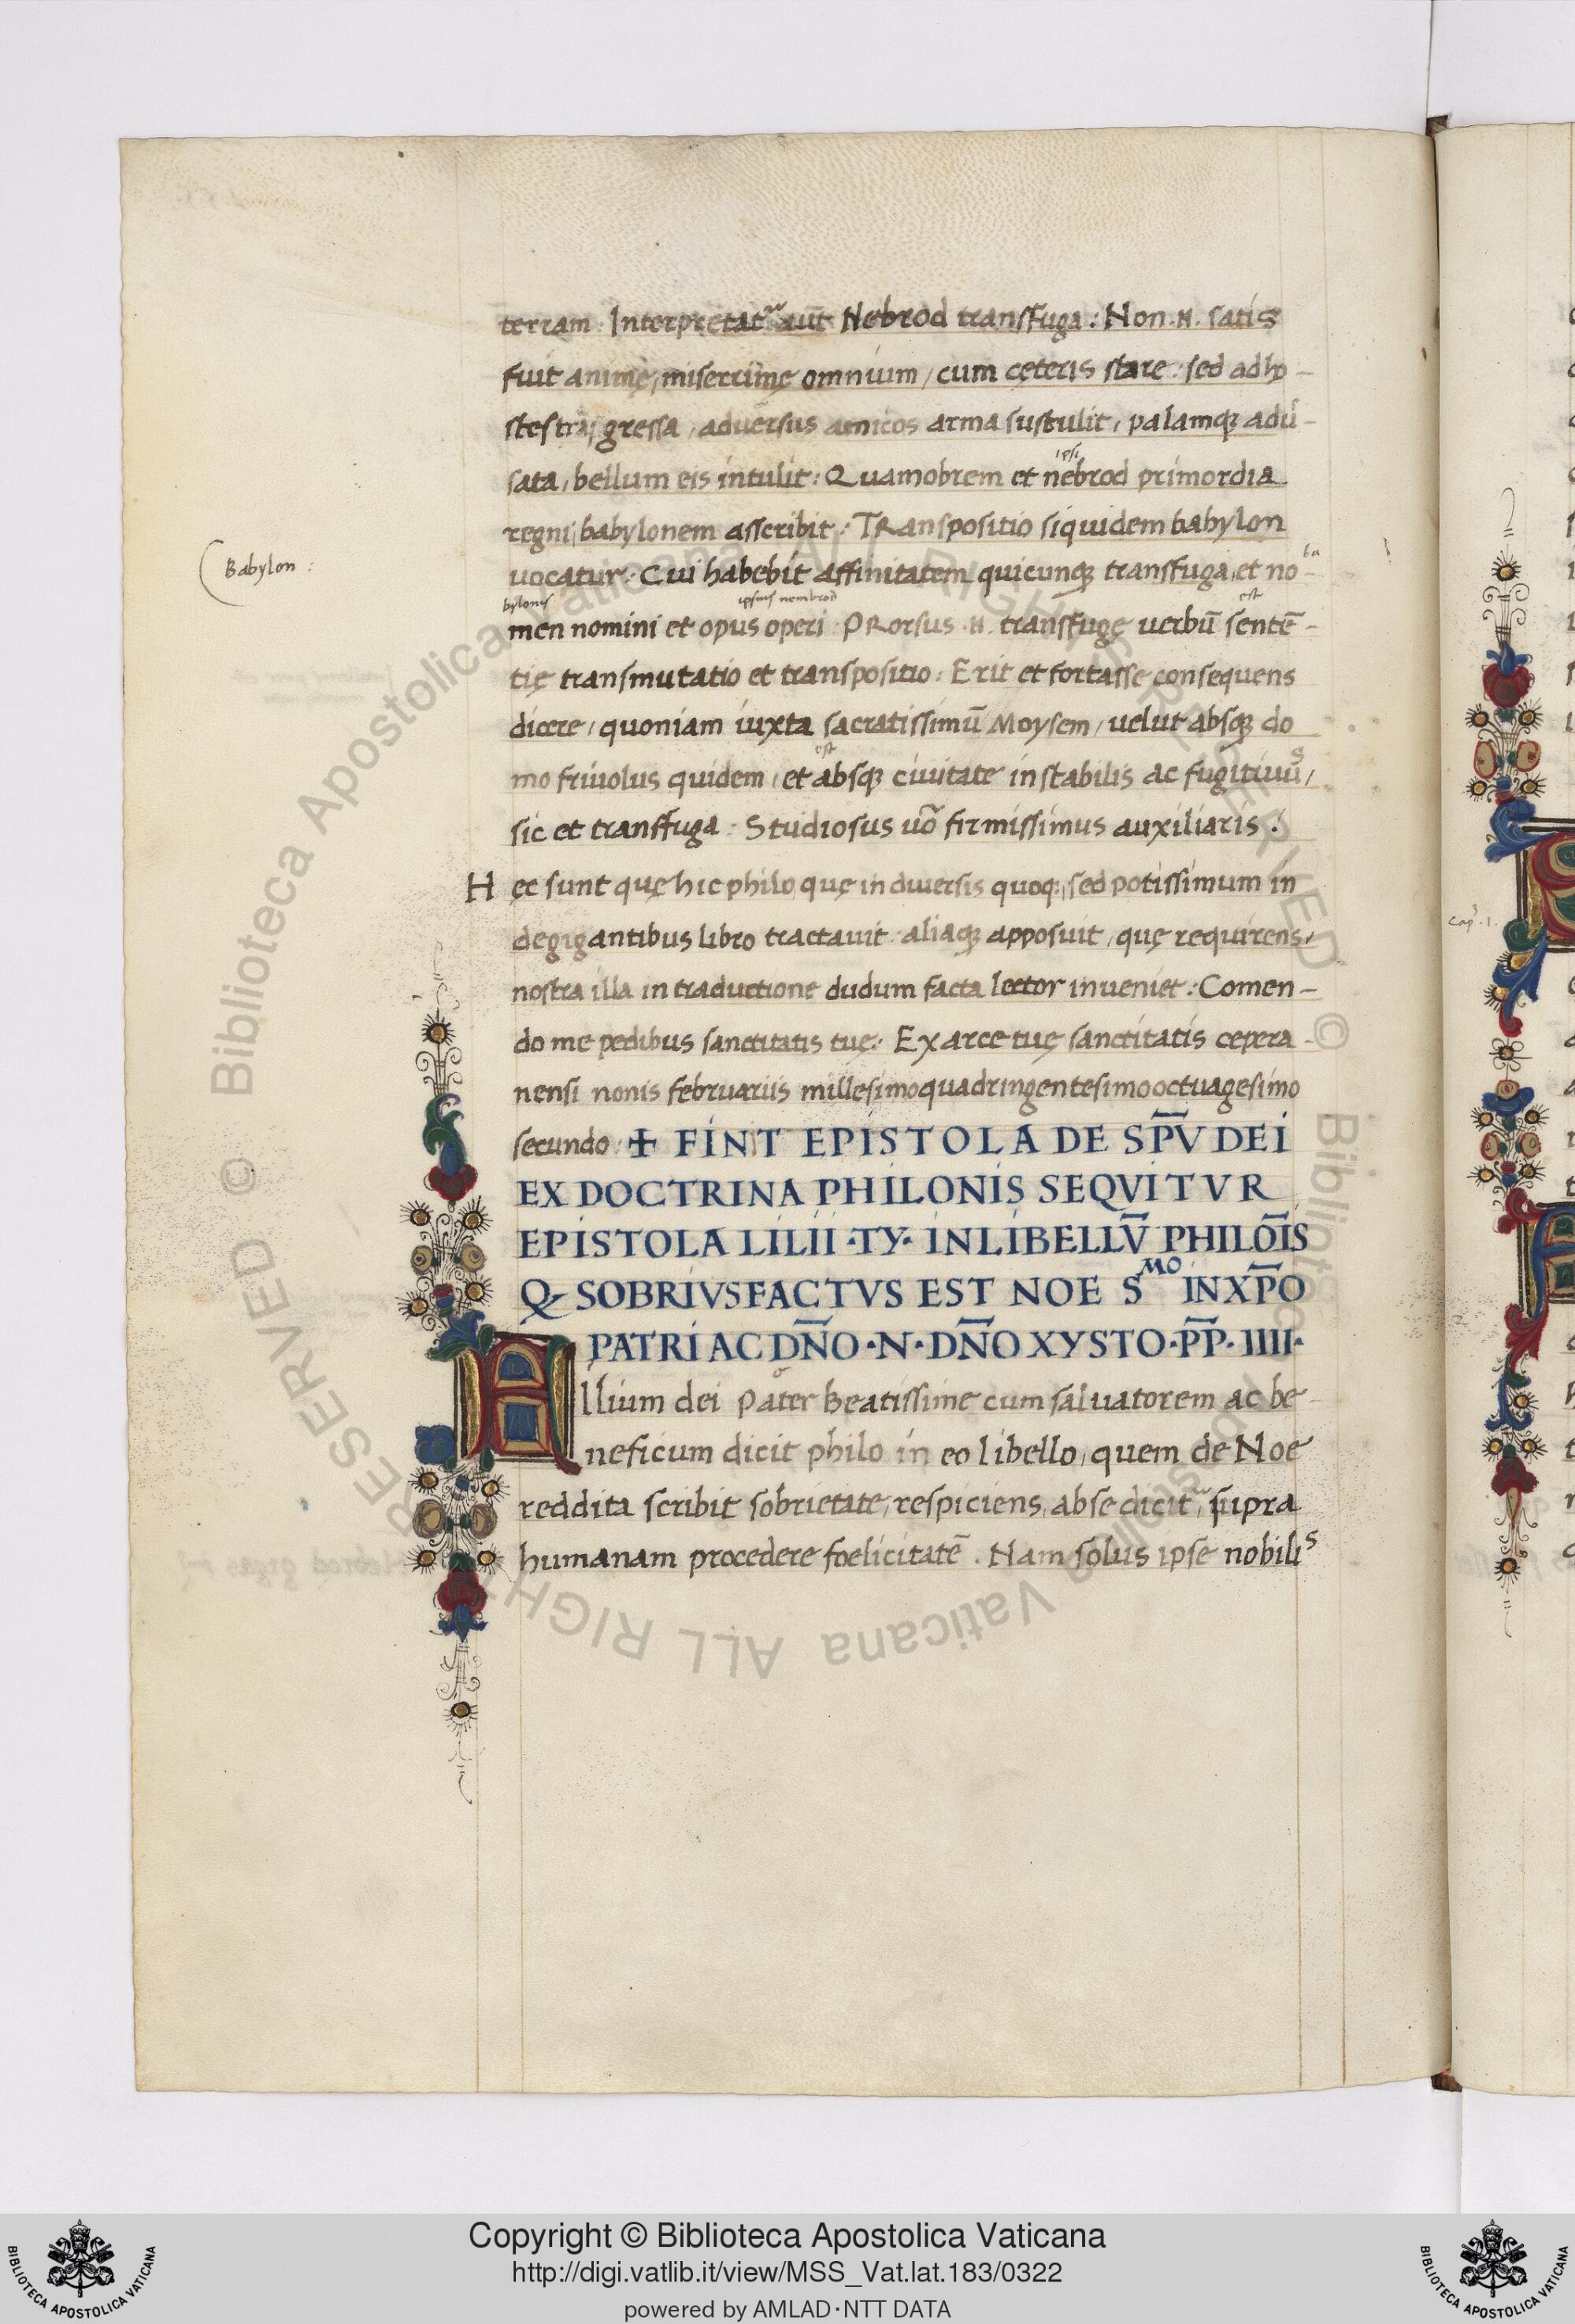 terram : Interpretat᷑ aūt Nebrod transfuga : Non .N. satis
fuit animę, miserrimę omnium, cum cęteris stare : sed ad ho-
stes trāsgressa, adversus amicos arma sustulit, palamqꝫ adū-
ipsi
sata, bellum eis intulit : Quamobrem et nebrod primordia
regni, babylonem asscribit : TRanspositio siquidem babylon
Babylon :
uocatur : Cui habebit affinitatem quicunqꝫ transfuga, et no-
ba
bylonis ipsius nembrod est
men nomini et opus operi : PRorsus .N. transfugę uerbū sentē-
tię transmutatio et transpositio : Erit et fortasse consequens
dicere, quoniam iuxta sacratissimū Moysem, uelut absqꝫ do
est
mo friuolus quidem, et absqꝫ ciuitate instabilis ac fugitiuus,
sic et transfuga : Studiosus uō firmissimus auxiliaris :
Hęc sunt quę hic philo quę in diuersis quoqꝫ, sed potissimum in
de gigantibus libro tractauit : aliaqꝫ apposuit, quę requirens,
nostra illa in traductione dudum facta lector inueniet : Comen-
do me pedibus sanctitatis tuę : Ex arce tuę sanctitatis cepera-
nensi nonis februariis millesimoquadringentesimooctuagesimo
secundo : + FINT EPISTOLA DE SP̅V DEI
EX DOCTRINA PHILONIS SEQVITVR
EPISTOLA LILII ·TY· IN LIBELLV̅ PHILOI̅S
Q- SOBRIVS FACTVS EST NOE SMO IN XP̅O
PATRI AC DN̅O ·N· DN̅O XYSTO ·PP̅· IIII·
Allium dei Pater Beatissime cum saluatorem ac be-
neficum dicit philo in eo libello, quem de Noe
reddita scribit sobrietate, respiciens, ab se dicit᷑, supra
humanam procedere foelicitatē . Nam solus ipse nobilis
cap 3. 1.
Copyright © Biblioteca Apostolica Vaticana
http://digi.vatlib.it/view/MSS_Vat.lat.183/0322
powered by AMLAD·NTT DATA
BIBLIOTECA APOSTOLICA VATICANA
BIBLIOTECA APOSTOLICA VATICANA